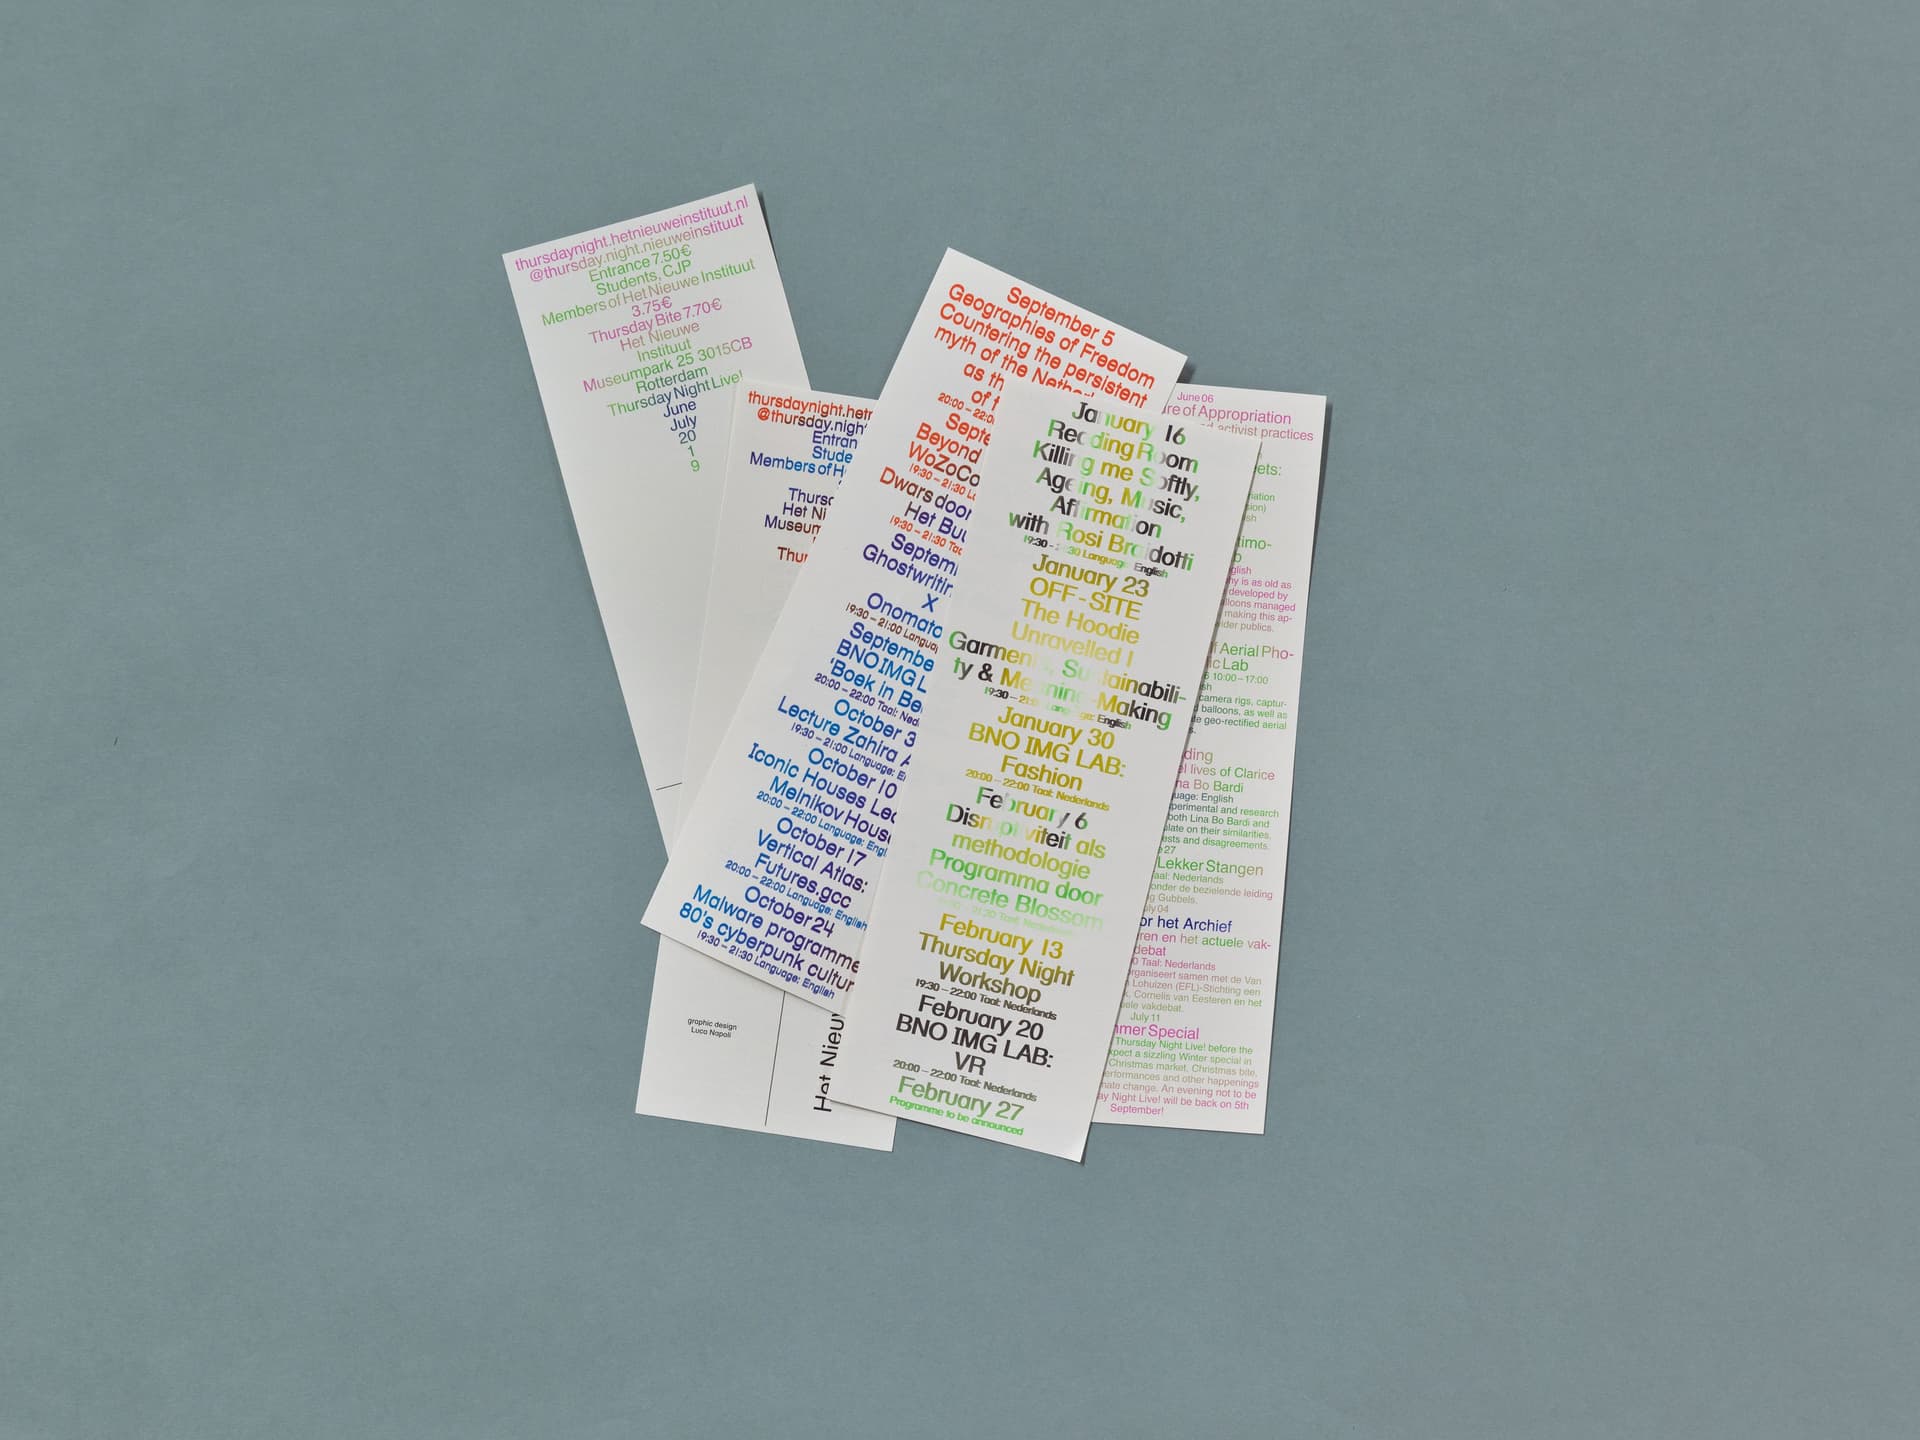 thursdaynight.hetnieuweinstituut.nl
@thursday.night.nieuweinstituut
Entrance 7.50€
Students, CJP
Members of Het Nieuwe Instituut
3.75€
Thursday Bite 7.70€
Het Nieuwe
Instituut
Museumpark 25 3015CB
Rotterdam
Thursday Night Live!
June
July
20
1
9
thursdaynight.hetn
@thursday.nigh
Entran
Stude
Members of H
Thurs
Het Ni
Museum
Thur
graphic design
Luca Napoli
Het Nieuw
September 5
Geographies of Freedom
Countering the persistent
myth of the Nether
as th
of t
20:00 – 22:0
Septe
Beyond
WoZoCo
19:30 – 21:30 La
Dwars door
Het Buu
19:30 – 21:30 Taa
Septem
Ghostwritin
X
Onomato
19:30 – 21:00 Languag
Septembe
BNO IMG L
'Boek in Be
20:00 – 22:00 Taal: Ned
October 3
Lecture Zahira A
19:30 – 21:00 Language: E
October 10
Iconic Houses Lec
Melnikov House
20:00 – 22:00 Language: Engl
October 17
Vertical Atlas:
Futures.gcc
20:00 – 22:00 Language: English
October 24
Malware programme
80's cyberpunk cultur
19:30 – 21:30 Language: English
January 16
Reading Room
Killing me Softly,
Ageing, Music,
Affirmation
with Rosi Braidotti
19:30 – 21:30 Language: English
January 23
OFF-SITE
The Hoodie
Unravelled I
Garments, Sustainabili-
ty & Meaning-Making
19:30 – 21:00 Language: English
January 30
BNO IMG LAB:
Fashion
20:00 – 22:00 Taal: Nederlands
February 6
Disruptiviteit als
methodologie
Programma door
Concrete Blossom
19:30 – 21:30 Taal: Nederlands
February 13
Thursday Night
Workshop
19:30 – 22:00 Taal: Nederlands
February 20
BNO IMG LAB:
VR
20:00 – 22:00 Taal: Nederlands
February 27
Programme to be announced
June 06
re of Appropriation
d activist practices
eets:
nation
sion)
sh
timo-
glish
hy is as old as
developed by
lloons managed
making this ap-
ider publics.
f Aerial Pho-
ic Lab
6 10:00 – 17:00
sh
camera rigs, captur-
d balloons, as well as
te geo-rectified aerial
s.
ding
el lives of Clarice
na Bo Bardi
uage: English
perimental and research
both Lina Bo Bardi and
late on their similarities,
ests and disagreements.
e 27
Lekker Stangen
aal: Nederlands
onder de bezielende leiding
g Gubbels.
uly 04
or het Archief
ren en het actuele vak-
debat
0 Taal: Nederlands
organiseert samen met de Van
n Lohuizen (EFL)-Stichting een
k, Cornelis van Eesteren en het
ele vakdebat.
July 11
mmer Special
Thursday Night Live! before the
xpect a sizzling Winter special in
Christmas market, Christmas bite,
erformances and other happenings
mate change. An evening not to be
ay Night Live! will be back on 5th
September!